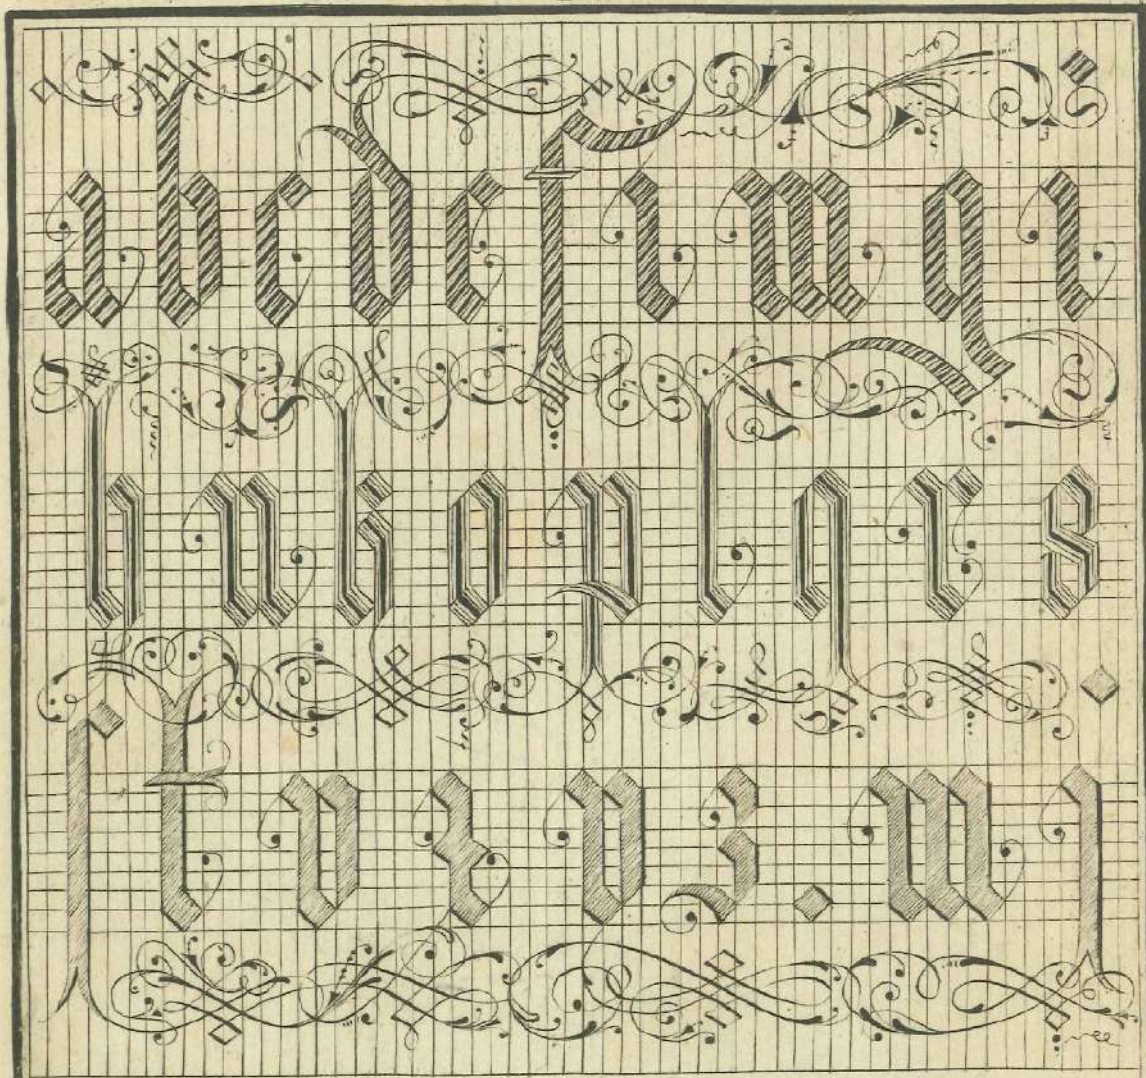 a b c d e f i m g i
h n k o p l q r s
ſ t v x y z . w j